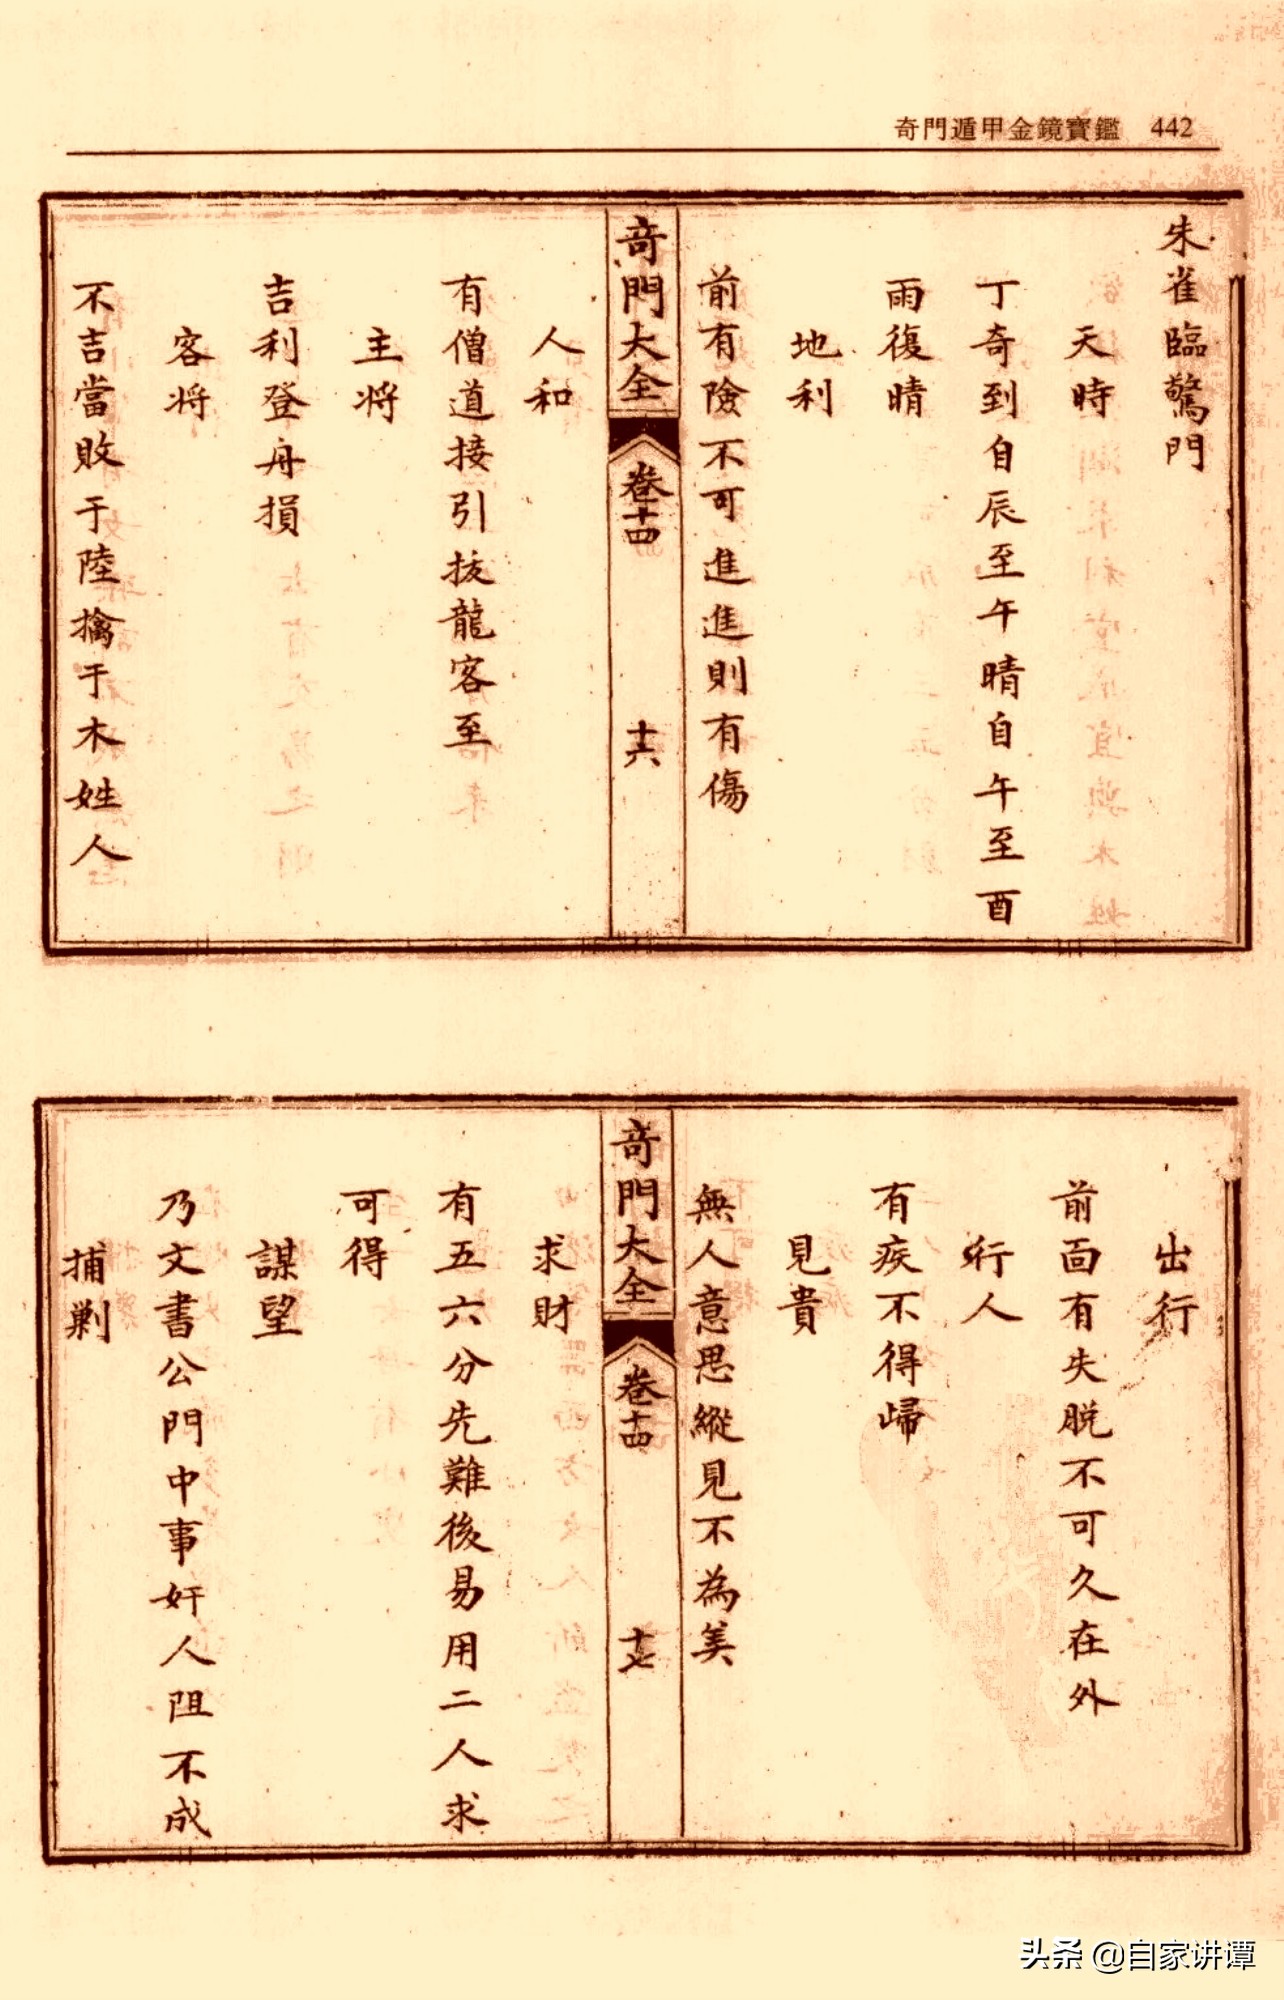 奇門遁甲金鏡寶鑑 442
朱雀臨驚門
天時
丁奇到自辰至午晴自午至酉
雨復晴
地利
前有險不可進進則有傷
奇門大全 卷十四 十六
人和
有僧道接引拔龍客至
主将
吉利登舟損
客将
不吉當敗于陸擒于木姓人
出行
前面有失脱不可久在外
行人
有疾不得歸
見貴
無人意思縱見不為美
奇門大全 卷十四 十七
求財
有五六分先難後易用二人求
可得
謀望
乃文書公門中事奸人阻不成
捕剿
头条 @自家讲谭